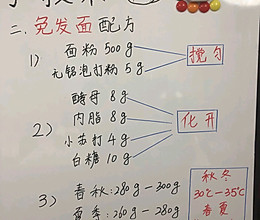 二. 免发面配方
1) 面粉 500g
无铝泡打粉 5g
搅匀
2) 酵母 8g
内脂 8g
小苏打 4g
白糖 10g
化开
3) 春秋:280g—300g
夏季:260g—280g
秋冬
30℃—35℃
春夏